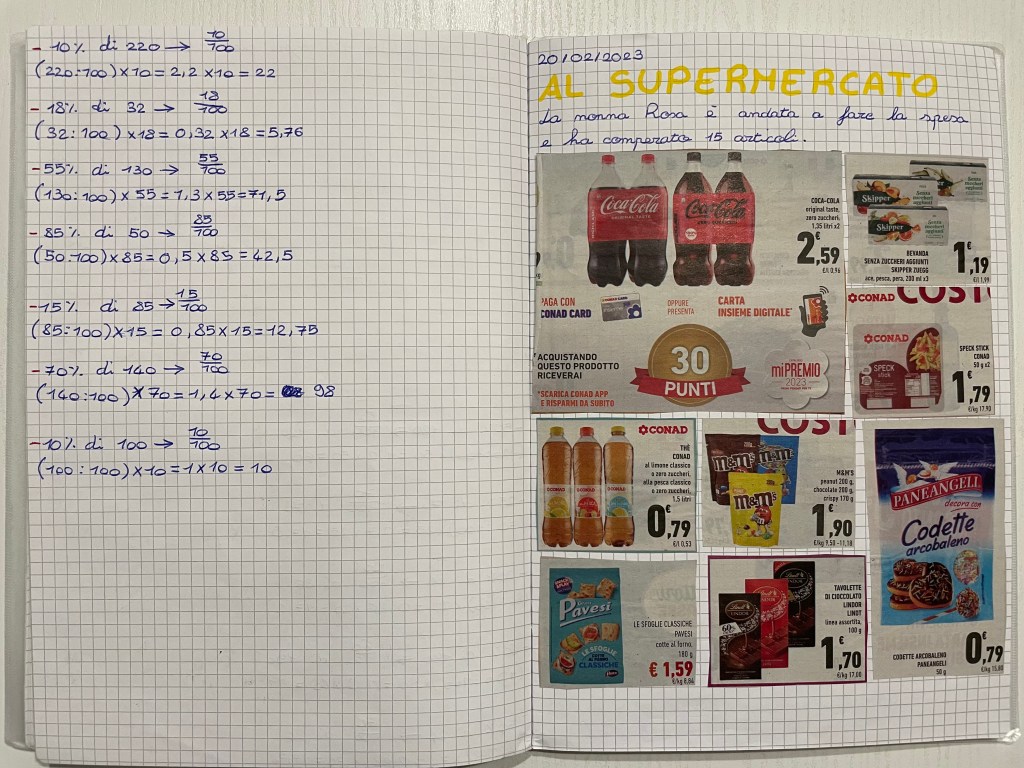 - 10% di 220 → 10/100
(220:100)×10=2,2×10=22
- 18% di 32 → 18/100
(32:100)×18=0,32×18=5,76
- 55% di 130 → 55/100
(130:100)×55=1,3×55=71,5
- 85% di 50 → 85/100
(50:100)×85=0,5×85=42,5
- 15% di 85 → 15/100
(85:100)×15=0,85×15=12,75
- 70% di 140 → 70/100
(140:100)×70=1,4×70= 98
- 10% di 100 → 10/100
(100:100)×10=1×10=10
20/02/2023
AL SUPERMERCATO
La nonna Rosa è andata a fare la spesa
e ha comperato 15 articoli.
Coca-Cola
Coca-Cola
COCA-COLA
original taste,
zero zuccheri,
1,35 litri x2
2,59 €
€/l 0,96
PAGA CON
CONAD CARD
OPPURE
PRESENTA
CARTA
INSIEME DIGITALE*
ACQUISTANDO
QUESTO PRODOTTO
RICEVERAI
30
PUNTI
miPREMIO
2023
*SCARICA CONAD APP
E RISPARMI DA SUBITO
Skipper
Senza
zuccheri
aggiunti
Skipper
Senza
zuccheri
aggiunti
BEVANDA
SENZA ZUCCHERI AGGIUNTI
SKIPPER ZUEGG
ace, pesca, pera, 200 ml x3
1,19 €
€/l 1,99
CONAD COST
CONAD
SPECK
stick
SPECK STICK
CONAD
50 g x2
1,79 €
€/kg 17,90
CONAD
THÈ
CONAD
al limone classico
o zero zuccheri,
alla pesca classico
o zero zuccheri,
1,5 litri
0,79 €
€/l 0,53
COST
m&m's
m&m's
m&m's
M&M'S
peanut 200 g,
chocolate 200 g,
crispy 170 g
1,90 €
€/kg 9,50 -11,18
PANEANGELI
decora con
Codette
arcobaleno
CODETTE ARCOBALENO
PANEANGELI
50 g
0,79 €
€/kg 15,80
Pavesi
LE SFOGLIE
COTTE AL FORNO
CLASSICHE
LE SFOGLIE CLASSICHE
PAVESI
cotte al forno,
180 g
€ 1,59
€/kg 8,84
Lindt
LINDOR
60%
Lindt
Lindt
TAVOLETTE
DI CIOCCOLATO
LINDOR
LINDT
linea assortita,
100 g
1,70 €
€/kg 17,00